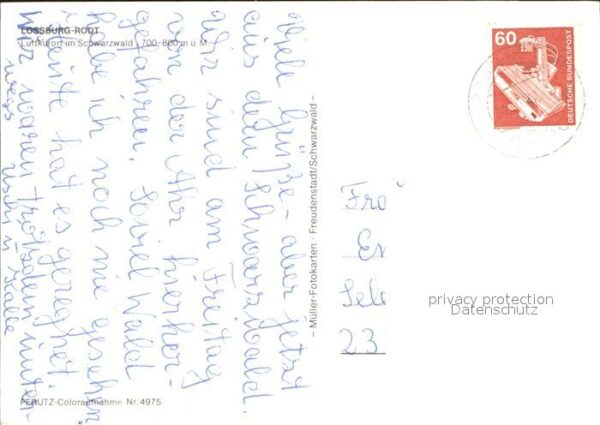 LOSSBURG-RODT
Luftkurort im Schwarzwald 700-800 m ü. M.
Viele Grüße - aber jetzt
aus dem Schwarzwald.
Wir sind am Freitag
von der Ahr hierher-
gefahren. Soviel Wald
habe ich noch nie gesehen
Heute hat es geregnet.
Wir waren trotzdem unter-
wegs
Uschi u.
PERUTZ-Coloraufnahme Nr. 4975
– Müller-Fotokarten · Freudenstadt/Schwarzwald –
60
DEUTSCHE BUNDESPOST
Fra
Er
Sele
23
privacy protection
Datenschutz